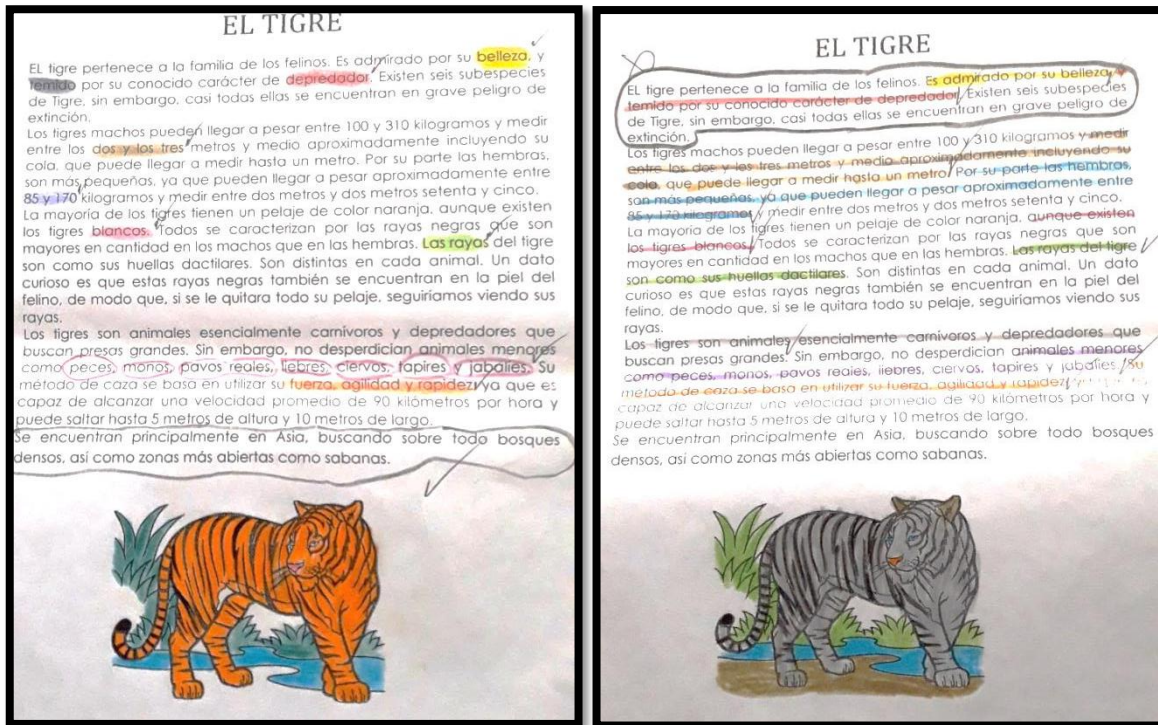 EL TIGRE
EL tigre pertenece a la familia de los felinos. Es admirado por su belleza, y
temido por su conocido carácter de depredador. Existen seis subespecies
de Tigre, sin embargo, casi todas ellas se encuentran en grave peligro de
extinción.
Los tigres machos pueden llegar a pesar entre 100 y 310 kilogramos y medir
entre los dos y los tres metros y medio aproximadamente incluyendo su
cola, que puede llegar a medir hasta un metro. Por su parte las hembras,
son más pequeñas, ya que pueden llegar a pesar aproximadamente entre
85 y 170 kilogramos y medir entre dos metros y dos metros setenta y cinco.
La mayoría de los tigres tienen un pelaje de color naranja, aunque existen
los tigres blancos. Todos se caracterizan por las rayas negras que son
mayores en cantidad en los machos que en las hembras. Las rayas del tigre
son como sus huellas dactilares. Son distintas en cada animal. Un dato
curioso es que estas rayas negras también se encuentran en la piel del
felino, de modo que, si se le quitara todo su pelaje, seguiríamos viendo sus
rayas.
Los tigres son animales esencialmente carnívoros y depredadores que
buscan presas grandes. Sin embargo, no desperdician animales menores
como peces, monos, pavos reales, liebres, ciervos, tapires y jabalíes. Su
método de caza se basa en utilizar su fuerza, agilidad y rapidez ya que es
capaz de alcanzar una velocidad promedio de 90 kilómetros por hora y
puede saltar hasta 5 metros de altura y 10 metros de largo.
Se encuentran principalmente en Asia, buscando sobre todo bosques
densos, así como zonas más abiertas como sabanas.
EL TIGRE
EL tigre pertenece a la familia de los felinos. Es admirado por su belleza,
temido por su conocido carácter de depredador. Existen seis subespecies
de Tigre, sin embargo, casi todas ellas se encuentran en grave peligro de
extinción.
Los tigres machos pueden llegar a pesar entre 100 y 310 kilogramos y medir
entre los dos y los tres metros y medio aproximadamente incluyendo su
cola, que puede llegar a medir hasta un metro. Por su parte las hembras,
son más pequeñas, ya que pueden llegar a pesar aproximadamente entre
85 y 170 kilogramos y medir entre dos metros y dos metros setenta y cinco.
La mayoría de los tigres tienen un pelaje de color naranja, aunque existen
los tigres blancos. Todos se caracterizan por las rayas negras que son
mayores en cantidad en los machos que en las hembras. Las rayas del tigre
son como sus huellas dactilares. Son distintas en cada animal. Un dato
curioso es que estas rayas negras también se encuentran en la piel del
felino, de modo que, si se le quitara todo su pelaje, seguiríamos viendo sus
rayas.
Los tigres son animales esencialmente carnívoros y depredadores que
buscan presas grandes. Sin embargo, no desperdician animales menores
como peces, monos, pavos reales, liebres, ciervos, tapires y jabalíes. Su
método de caza se basa en utilizar su fuerza, agilidad y rapidez
capaz de alcanzar una velocidad promedio de 90 kilómetros por hora y
puede saltar hasta 5 metros de altura y 10 metros de largo.
Se encuentran principalmente en Asia, buscando sobre todo bosques
densos, así como zonas más abiertas como sabanas.